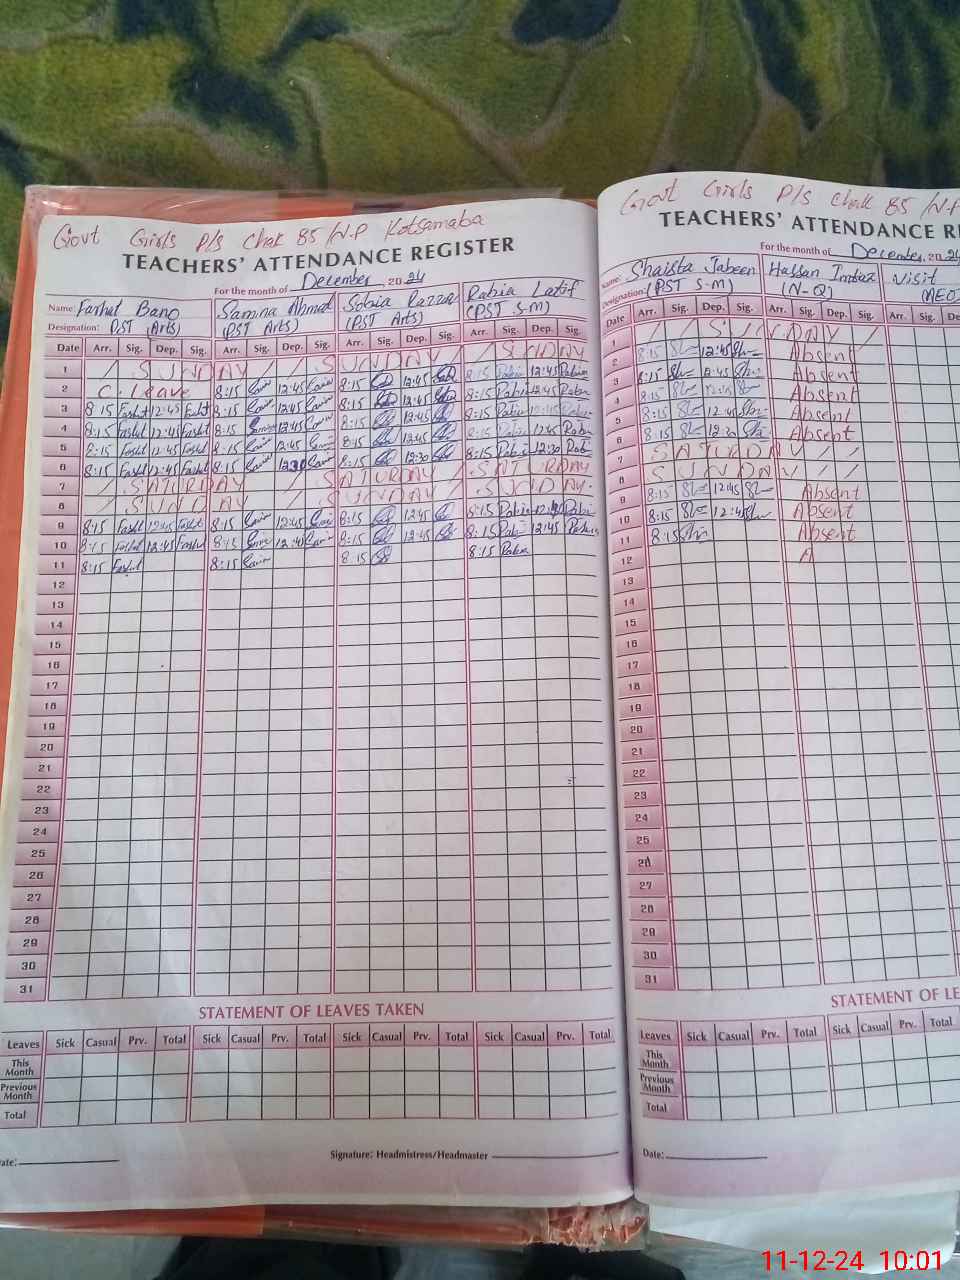 Govt Girls P/S Chak 85/N.P Kotsamaba
TEACHERS' ATTENDANCE REGISTER
For the month of December, 2024
Name: Farhut Bano Samina Ahmad Sobia Razzaq Rabia Latif
Designation: PST (Arts) (PST Arts) (PST Arts) (PST S-M)
Date Arr. Sig. Dep. Sig. Arr. Sig. Dep. Sig. Arr. Sig. Dep. Sig. Arr. Sig. Dep. Sig.
1 / SUNDAY / SUNDAY / SUNDAY
2 C. leave 8:15 12:45 8:15 12:45 8:15 Rabia 12:45 Rabia
3 8:15 Farhut 12:45 Farhut 8:15 12:45 8:15 12:45 8:15 Rabia 12:45 Rabia
4 8:15 Farhut 12:45 Farhut 8:15 12:45 8:15 12:45 8:15 Rabia 12:45 Rabia
5 8:15 Farhut 12:45 Farhut 8:15 12:45 8:15 12:45 8:15 Rabia 12:45 Rabia
6 8:15 Farhut 12:45 Farhut 8:15 12:30 8:15 12:30 8:15 Rabia 12:30 Rabia
7 / SATURDAY / SATURDAY / SATURDAY
8 / SUNDAY / SUNDAY / SUNDAY
9 8:15 Farhut 12:45 Farhut 8:15 12:45 8:15 12:45 8:15 Rabia Rabia
10 8:15 Farhut 12:45 Farhut 8:15 12:45 8:15 12:45 8:15 Rabia 12:45 Rabia
11 8:15 Farhut 8:15 8:15 8:15 Rabia
12
13
14
15
16
17
18
19
20
21
22
23
24
25
26
27
28
29
30
31
STATEMENT OF LEAVES TAKEN
Leaves Sick Casual Prv. Total Sick Casual Prv. Total Sick Casual Prv. Total Sick Casual Prv. Total
This Month
Previous Month
Total
Date:
Signature: Headmistress/Headmaster
Govt Girls P/S Chak 85/N.P
TEACHERS' ATTENDANCE RE
For the month of December, 2024
Name: Shaista Jabeen Hassan Imtiaz Visit
Designation: (PST S-M) (N-Q) (AEO)
Date Arr. Sig. Dep. Sig. Arr. Sig. Dep. Sig. Arr. Sig. De
1 / / SUNDAY /
2 8:15 12:45 Absent
3 8:15 12:45 Absent
4 8:15 12:45 Absent
5 8:15 12:45 Absent
6 8:15 12:30 Absent
7 SATURDAY / /
8 SUNDAY / /
9 8:15 12:45 Absent
10 8:15 12:45 Absent
11 8:15 Absent
12 A
13
14
15
16
17
18
19
20
21
22
23
24
25
26
27
28
29
30
31
STATEMENT OF LE
Leaves Sick Casual Prv. Total Sick Casual Prv. Total
This Month
Previous Month
Total
Date:
11-12-24 10:01